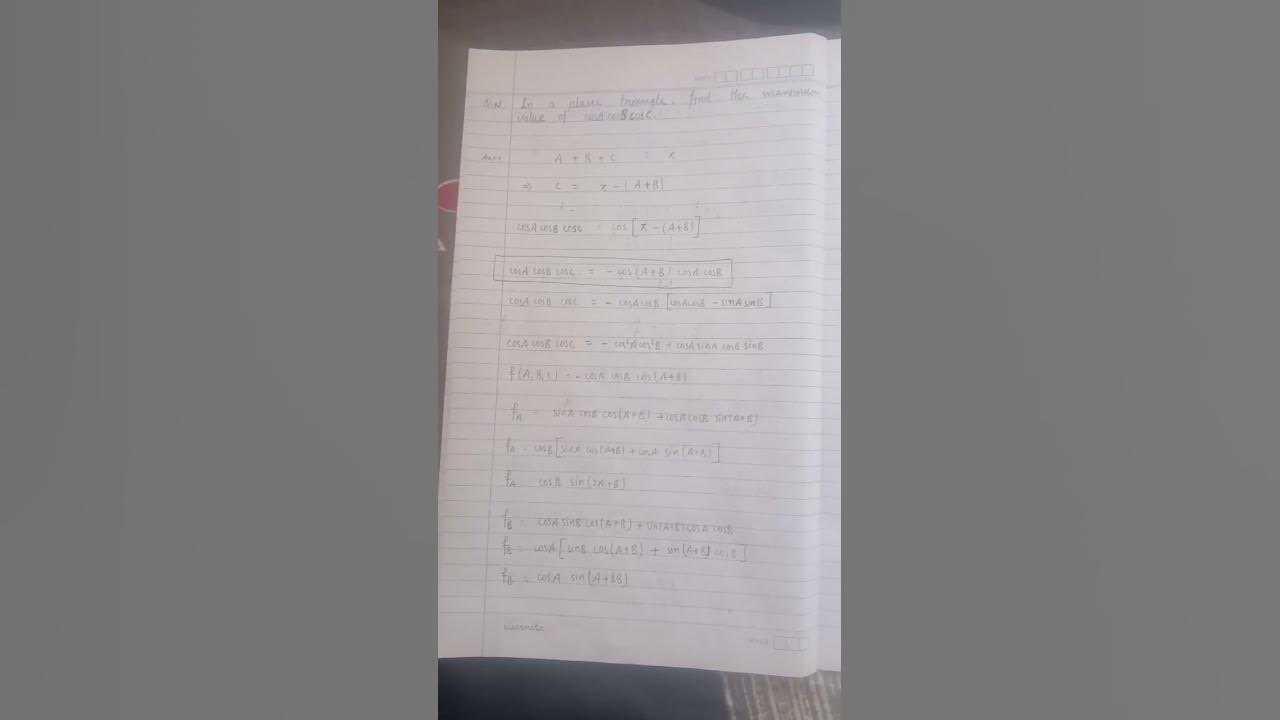 In a plane triangle, find the maximum
value of cosA cosB cosC.
Ans→ A + B + C = π
⇒ C = π - (A+B)
cosA cosB cosC = cos[π - (A+B)]
cosA cosB cosC = - cos(A+B) cosA cosB
cosA cosB cosC = - cosA cosB [cosA cosB - sinA sinB]
cosA cosB cosC = - cos²A cos²B + cosA sinA cosB sinB
f(A, B, C) = - cosA cosB cos(A+B)
f_A = sinA cosB cos(A+B) + cosA cosB sin(A+B)
f_A = cosB [sinA cos(A+B) + cosA sin(A+B)]
f_A cosB sin(2A+B)
f_B = cosA sinB cos(A+B) + sin(A+B) cosA cosB
f_B = cosA [sinB cos(A+B) + sin(A+B) cosB]
f_B = cosA sin(A+2B)
classmate